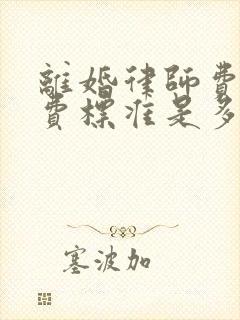 離婚律師費
費標准是多
塞波加